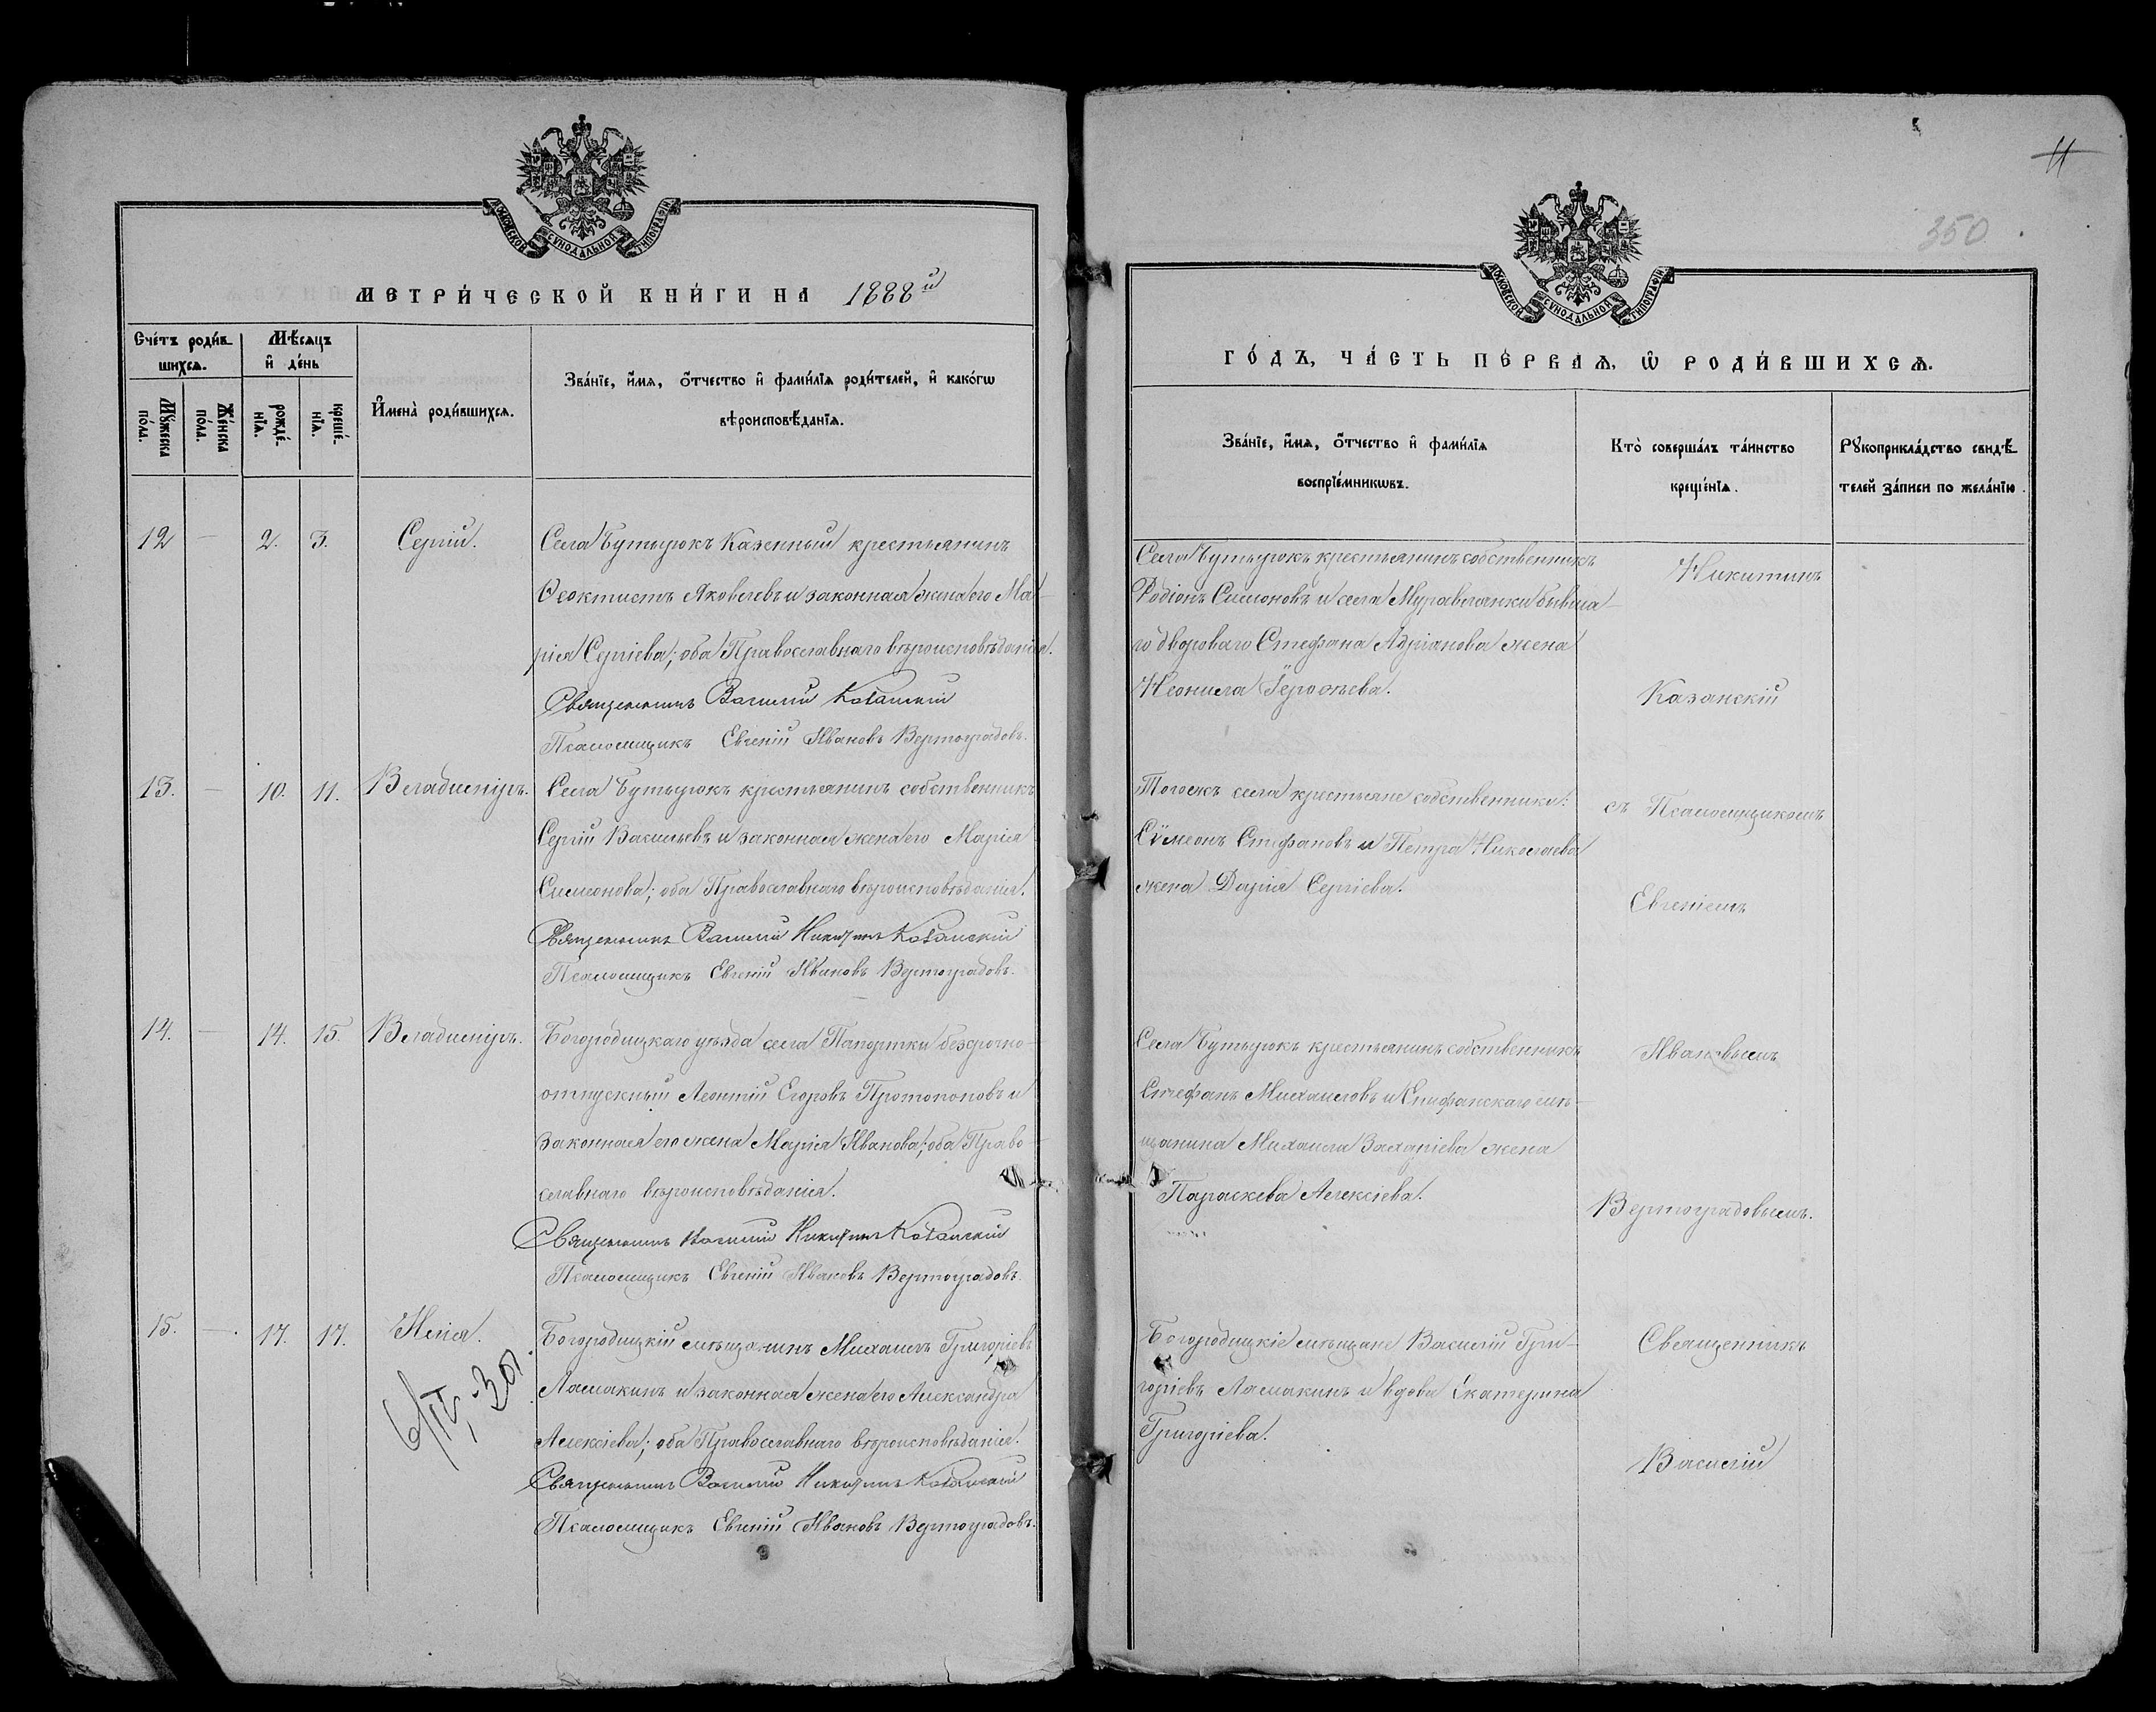 МОСКОВСКОЙ СѴНОДАЛЬНОЙ ТИПОГРАФІИ
МЕТРИ́ЧЕСКОЙ КНИ́ГИ НА 1888й
Сче́тъ роди́вшихсѧ.
Мѣ́сѧцъ и҆ де́нь
И҆мена̀ роди́вшихсѧ.
Зва́нїе, и҆́мѧ, ѻ҆́тчество и҆ фами́лїѧ роди́телей, и҆ како́гѡ
вѣроисповѣ́данїѧ.
Мꙋ́жеска по́ла.
Же́нска по́ла.
рожде́нїѧ.
креще́нїѧ.
12 — 2. 3. Сергій. Села Бутырокъ Казенный крестьянинъ
Ѳеоктистъ Яковлевъ и законная жена его Ма-
рія Сергіева; оба Православнаго вѣроисповѣданія.
Священникъ Василій Казанскій
Псаломщикъ Евгеній Ивановъ Вертоградовъ.
13. — 10. 11. Владиміръ. Села Бутырокъ крестьянинъ собственникъ
Сергій Васильевъ и законная жена его Марія
Симеонова; оба Православнаго вѣроисповѣданія.
Священникъ Василій Никитинъ Казанскій
Псаломщикъ Евгеній Ивановъ Вертоградовъ.
14. — 14. 15. Владиміръ. Богородицкаго уѣзда села Папортки безсрочно-
отпускный Леонтій Егоровъ Протопоповъ и
законная его жена Марія Иванова; оба Право-
славнаго вѣроисповѣданія.
Священникъ Василій Никитинъ Казанскій
Псаломщикъ Евгеній Ивановъ Вертоградовъ.
15. — 17. 17. Илія. Богородицкій мѣщанинъ Михаилъ Григоріевъ
6/IV-30.
Ламакинъ и законная жена его Александра
Алексіева; оба Православнаго вѣроисповѣданія.
Священникъ Василій Никитинъ Казанскій
Псаломщикъ Евгеній Ивановъ Вертоградовъ.
11
350
МОСКОВСКОЙ СѴНОДАЛЬНОЙ ТИПОГРАФІИ
ГО́ДЪ, ЧА́СТЬ ПЕ́РВАѦ, Ѡ҆ РОДИ́ВШИХСѦ.
Зва́нїе, и҆́мѧ, ѻ҆́тчество и҆ фами́лїѧ
воспрїе́мникѡвъ.
Кто̀ соверша́лъ та́инство
креще́нїѧ.
Рꙋкоприкла́дство свидѣ́-
телей за́писи по жела́нїю.
Села Бутырокъ крестьянинъ собственникъ
Родіонъ Симоновъ и села Муравлянки бывша-
го двороваго Стефана Адріанова жена
Неонила
Никитинъ
Казанскій
Тогожъ села крестьяне собственники:
Сѵмеонъ Стефановъ и Петра Николаева
жена Дарія Сергіева.
съ Псаломщикомъ
Евгеніемъ
Села Бутырокъ крестьянинъ собственникъ
Стефанъ Михаиловъ и Епифанскаго мѣ-
щанина Михаила Захаріева жена
Параскева Алексіева.
Ивановымъ
Вертоградовымъ.
Богородицкіе мѣщане Василій Гри-
горіевъ Ламакинъ и вдова Екатерина
Григоріева.
Священникъ
Василій